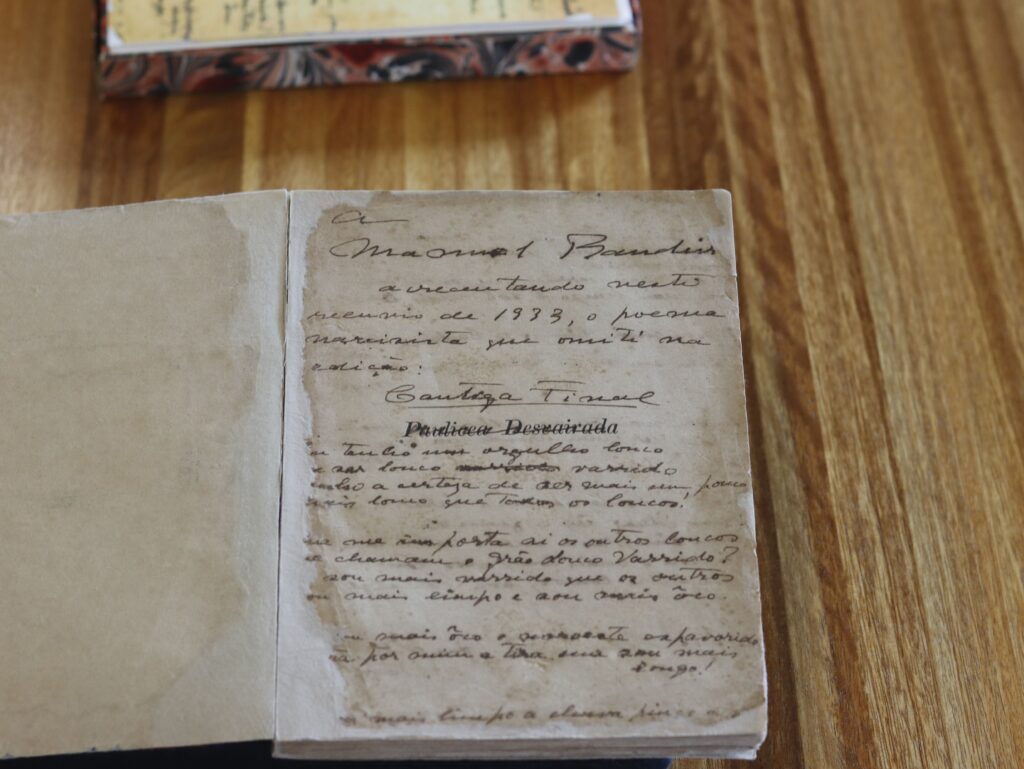 a
Manuel Bandeira
acrecentando neste
reenvio de 1933, o poema
narcisista que omiti na
edição:
Cantiga Final
Paulicea Desvairada
tenho um orgulho louco
ser louco varrido
a certeza de ser mais um, pouco
mais louco que todos os loucos.
me importa si os outros loucos
chamam o grão Louco Varrido?
sou mais varrido que os outros
mais limpo e sou mais ôco.
mais ôco o espavorido
por mim e tira sou mais
longo!
mais limpo a chuva